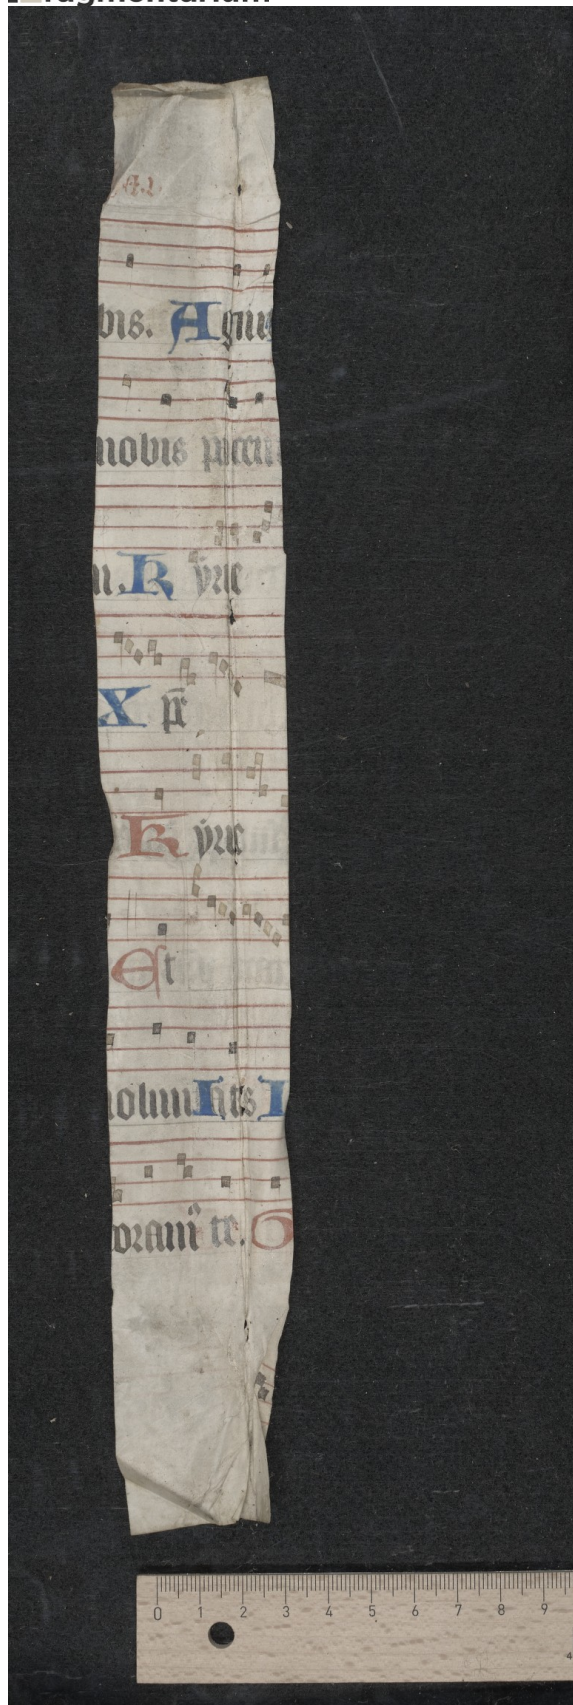 bis. Agnus
nobis pacem
n. Kyrie
Xpe
Kyrie
Et
voluntatis
oram te. G
0 1 2 3 4 5 6 7 8 9